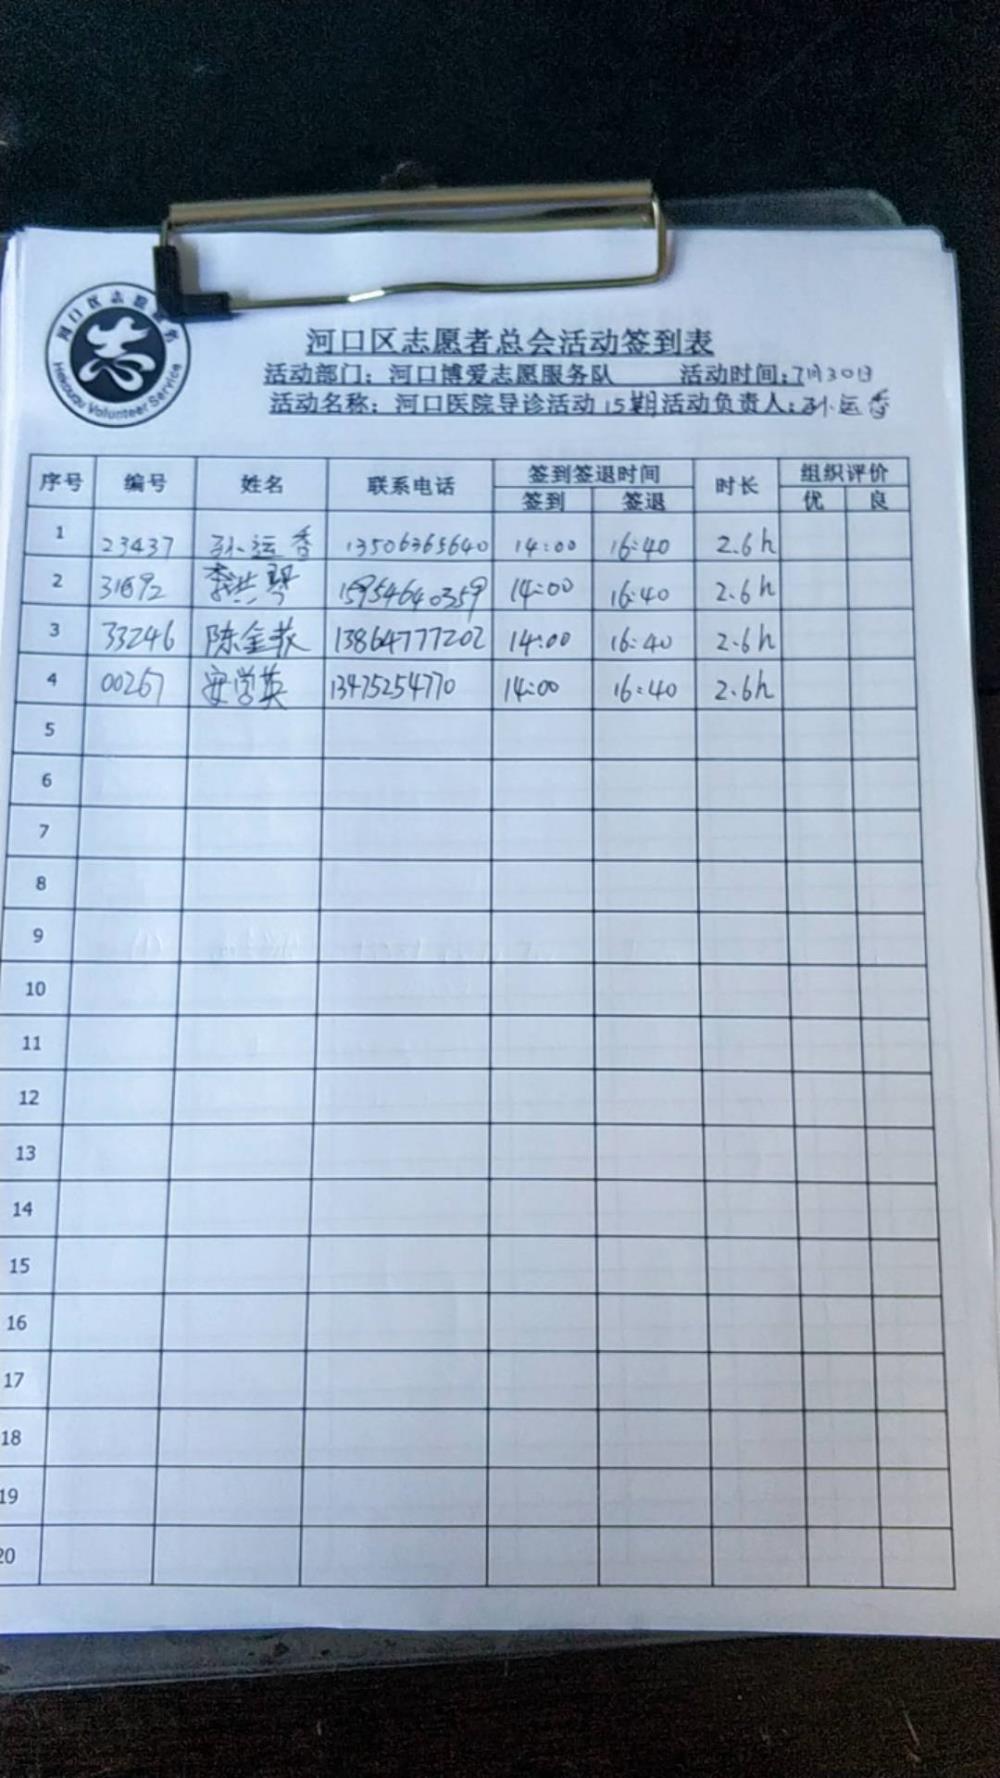 河口区志愿服务
Hekouqu Volunteer Service
河口区志愿者总会活动签到表
活动部门：河口博爱志愿服务队 活动时间：7月30日
活动名称：河口医院导诊活动15期 活动负责人：孙运香
序号 编号 姓名 联系电话 签到签退时间 时长 组织评价
签到 签退 优 良
1 23437 孙运香 13506365640 14:00 16:40 2.6h
2 31692 15954640359 14:00 16:40 2.6h
3 33246 陈金 13864777202 14:00 16:40 2.6h
4 00267 安学英 13475254770 14:00 16:40 2.6h
5
6
7
8
9
10
11
12
13
14
15
16
17
18
19
20